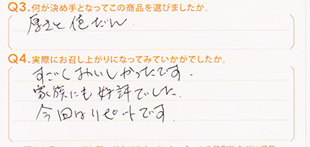 Q3.何が決め手となってこの商品を選びましたか。
厚さと値だん
Q4.実際にお召し上がりになってみていかがでしたか。
すごくおいしかったです。
家族にも好評でした。
今回はリピートです